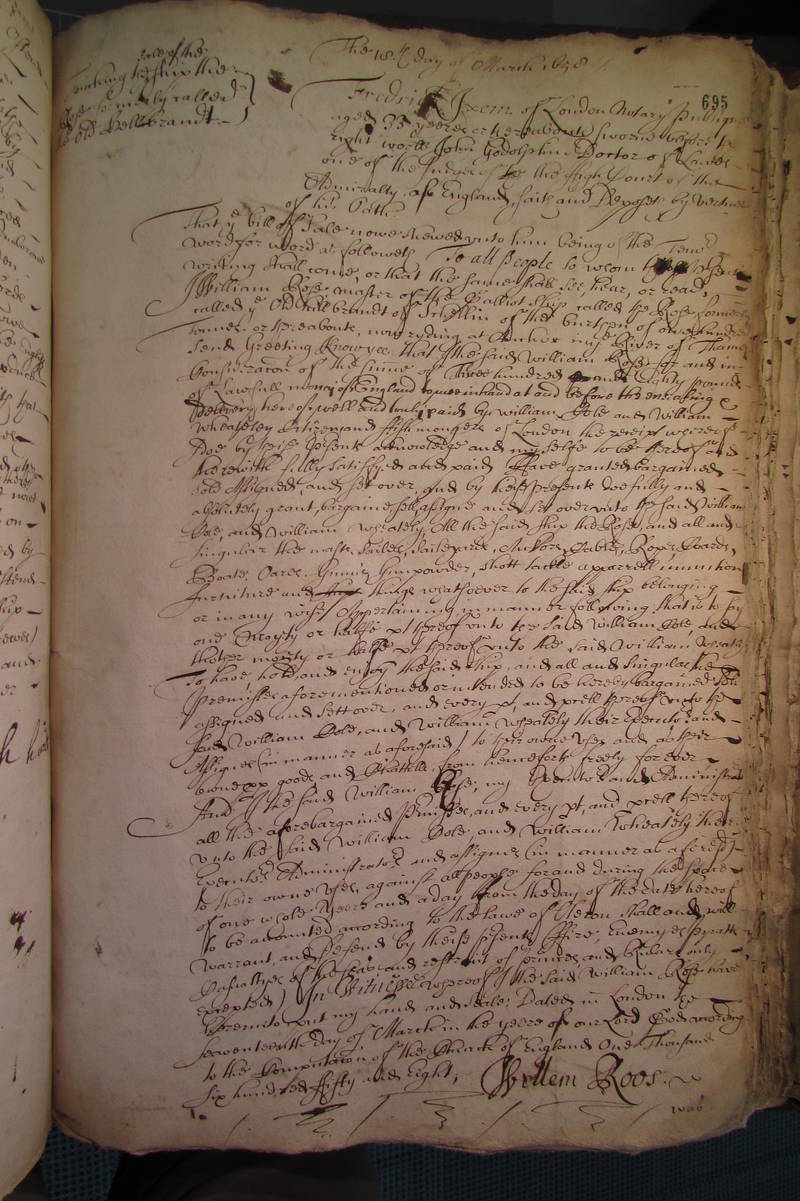 The 18th day of March 1658
695
sale of the
ship the
Rose formerly called
ye Old Hellebrandt
Fredrick Ixem of London Notary Publique
aged 35 yeeres or thereabouts sworne before the
right worll John Godolphin Doctor of Lawes
one of the Judges of the High Court of the
Admiralty of England, saith and deposeth by vertue
of his Oath
That ye bill of Sale now shewed unto him being of the Tenor
word for word as followeth To all people to whom this present
writing shall come, or that the same shall see, hear, or read,
I William Rose, master of the Galliot ship called the Rose formerly
called ye Old Hillbrandt of Schellin of the burthen of one hundred
tonnes or thereabouts, now ryding at Anchor in ye River of Thames
send Greeting Know yee that I the said William Rose for and in
Consideracon of the summe of Three hundred and Eighty pounds
of Lawfull money of England to mee in hand at and before the ensealing &
delivery hereof, well and truly paid by William Bole and William
Wheatley Citizens and ffishmongers of London the receipt whereof I
doe by theise presents acknowledge and my selfe to be thereof and
therewith fully satisfyed and paid Have granted bargained
sold assigned, and set over, and by these presents doe fully and
absolutely grant, bargaine sell, assigne and set over unto the said William
Bole, and William Wheately, All the said ship the Rose, and all and
singular the masts Sailes, Saileyards, Ankors, Cables, Ropes, Coards,
Boate, Oares, Gunnes, Gunpowder, shott tackle apparrell munition
furniture and things whatsoever to the said ship belonging
or in any wise Appertaining in manner following that is to say
one moyty or halfe pt thereof unto the said William Bole, and
thother moyty or halfe pt thereof unto the said William Wheately
To have hold and enjoy the said ship, and all and singular the
Premisses aforementioned or intended to be hereby bargained sold
assigned and sett over, and every pt, and prcell thereof unto the
said William Bole, and William Wheately their Executors and
Assignes (in manner as aforesaid) to their owne uses and as their
owne goods and Chattells from henceforth freely for ever
And I the said William Rose, my Executors and Administrators
all the aforebargained Premisses, and every pt, and prcell thereof
unto the said William Bole, and William Wheately their
Executors Administrators and assignes (in manner as aforesd)
to their owne uses, against all people for and during the space
of one whole yeere and a day from the day of the date hereof
to be accounted according to the lawes of Oleron shall and will
warrant, and defend by theise presents (ffire, Enemyes Pyrats
Casualtyes of the seas and restraint of princes, and Rulers only
excepted) In Witnesse whereof I the said William Rose have
hereunto put my hand and seale; Dated in London the
seaventeenth day of March in the yeere of our Lord God according
to the Computation of the Church of England One Thousand
Six hundred ffifty and Eight,
Willem Roos.